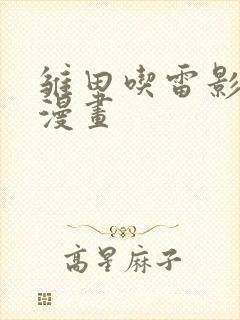 雏田喫雷影
漫畫
高星麻子